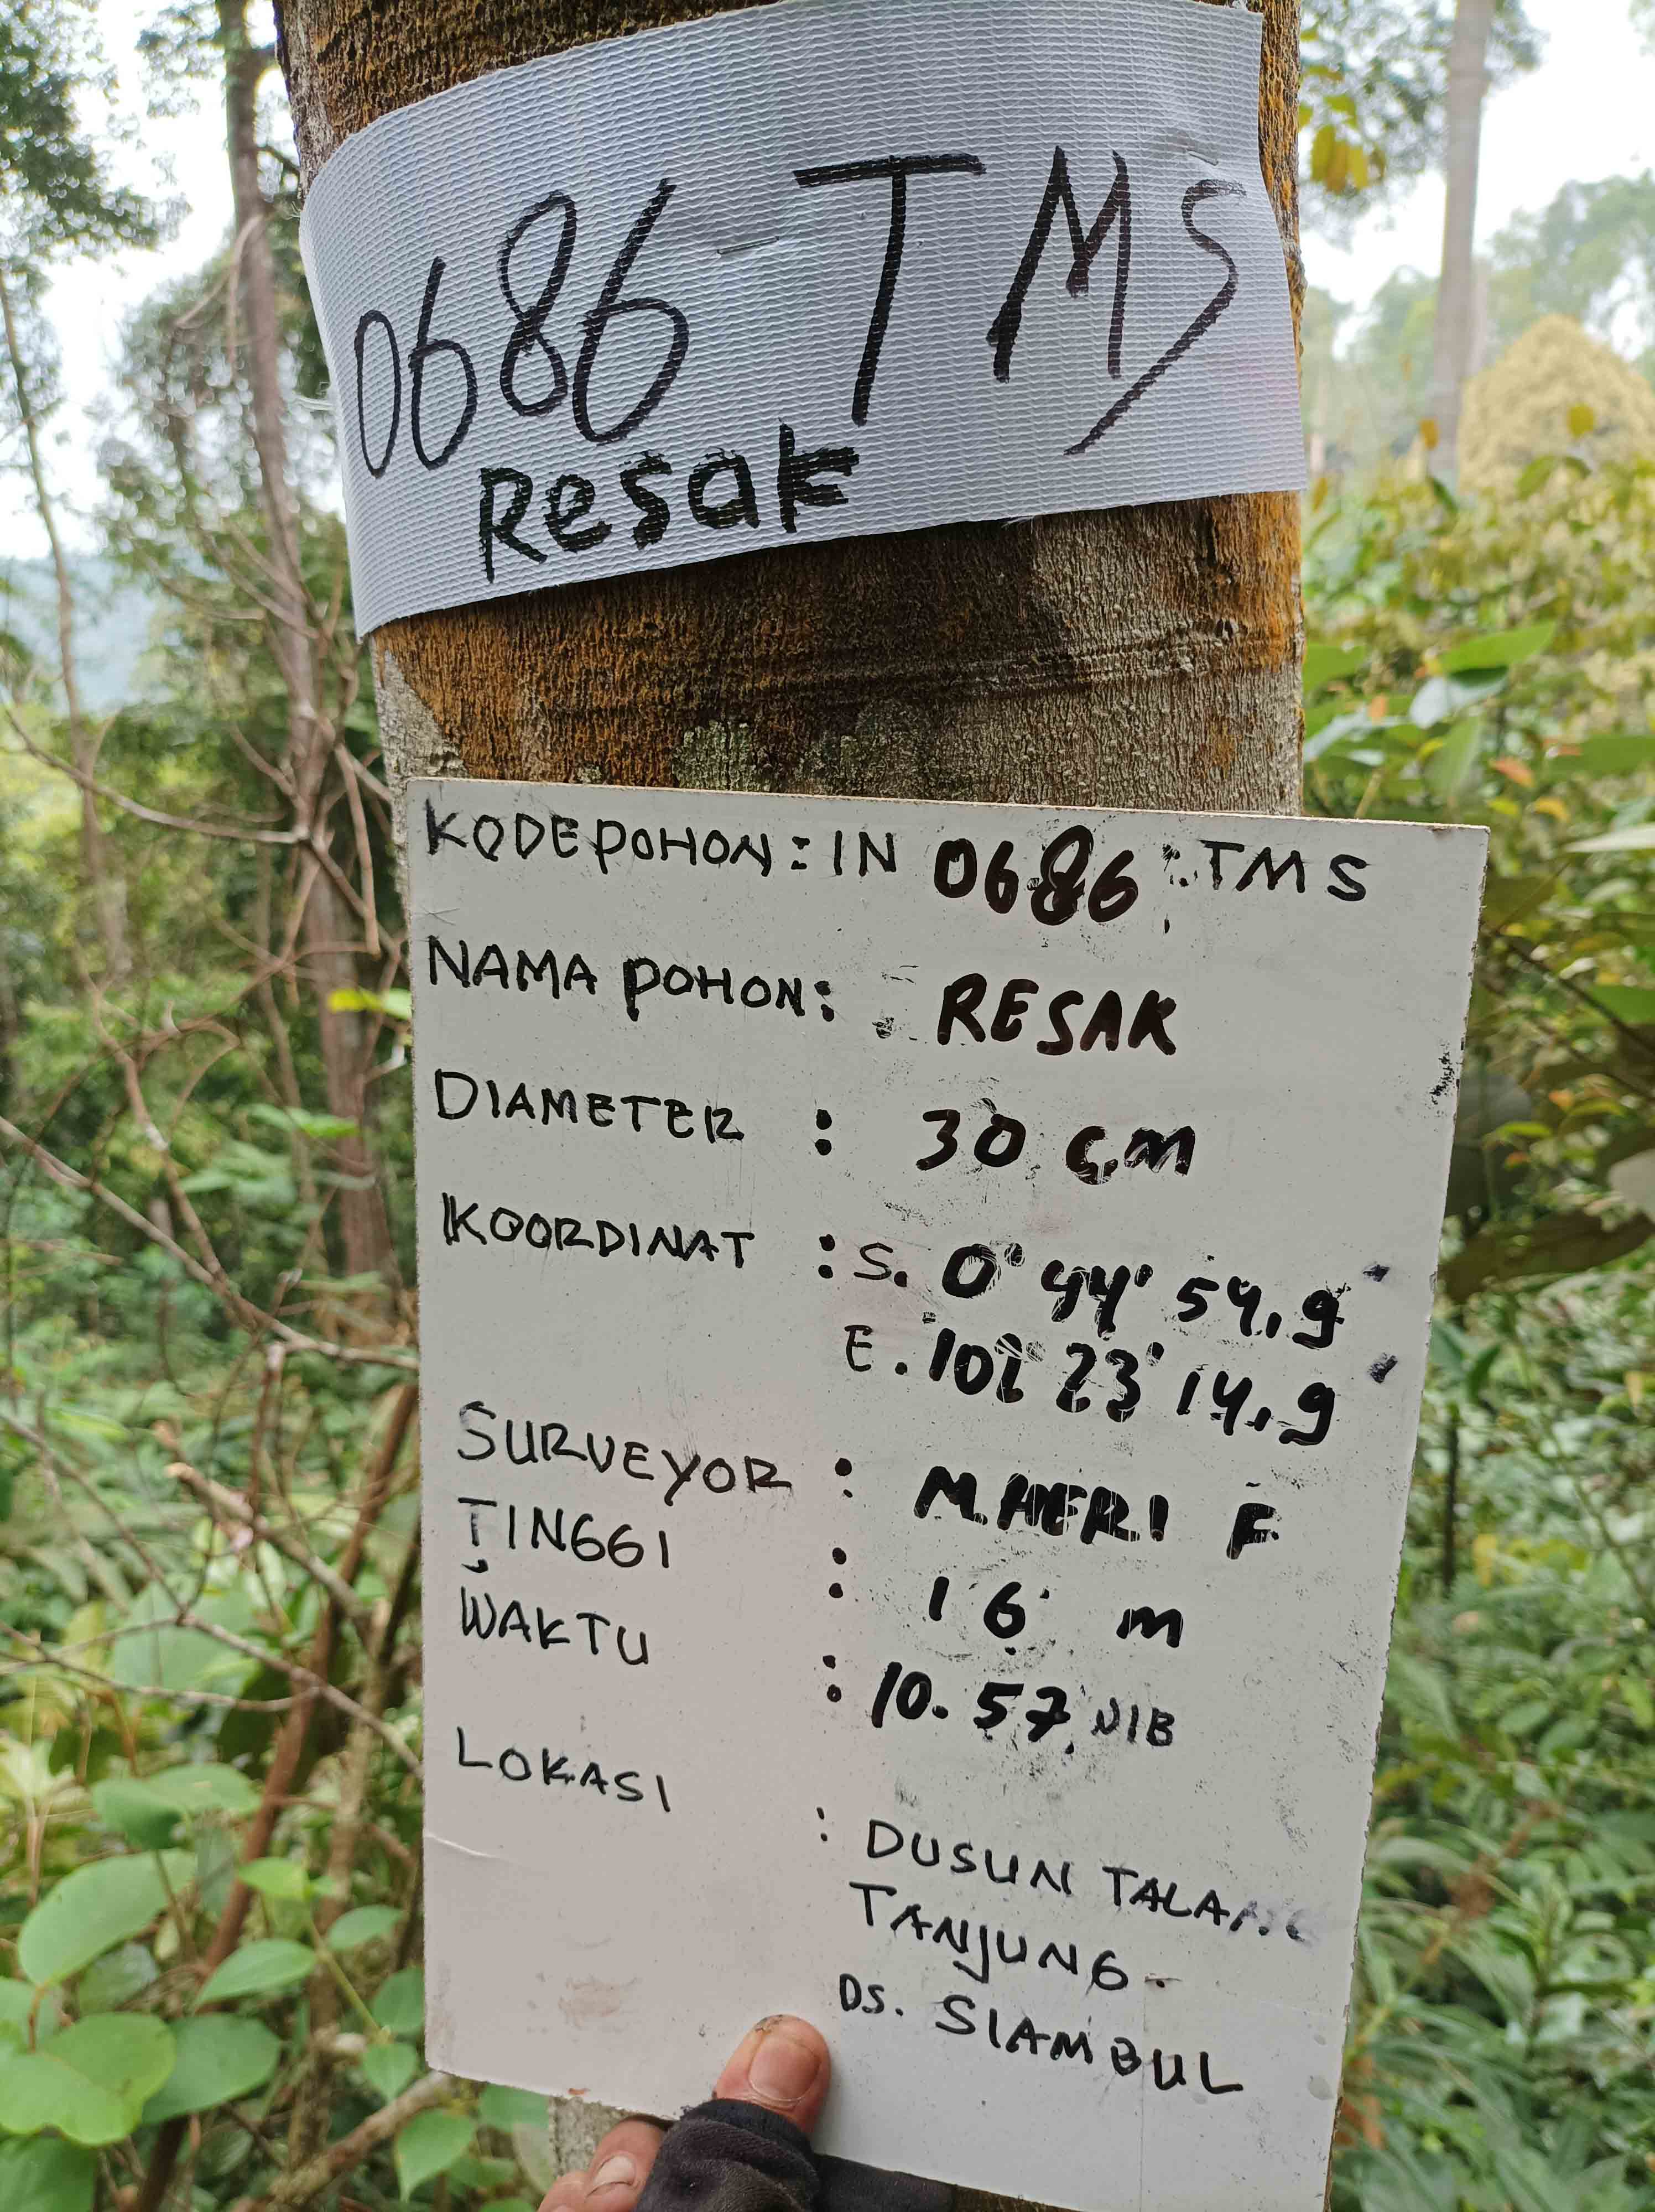 0686-TMS
Resak
KODE POHON : IN 0686 : TMS
NAMA POHON : RESAK
DIAMETER : 30 cm
KOORDINAT : S. 0° 44' 54,9"
E. 102° 23' 14,9"
SURVEYOR : M.HERI F
TINGGI : 16 m
WAKTU : 10.57 WIB
LOKASI : DUSUN TALANG
TANJUNG.
DS. SIAMBUL